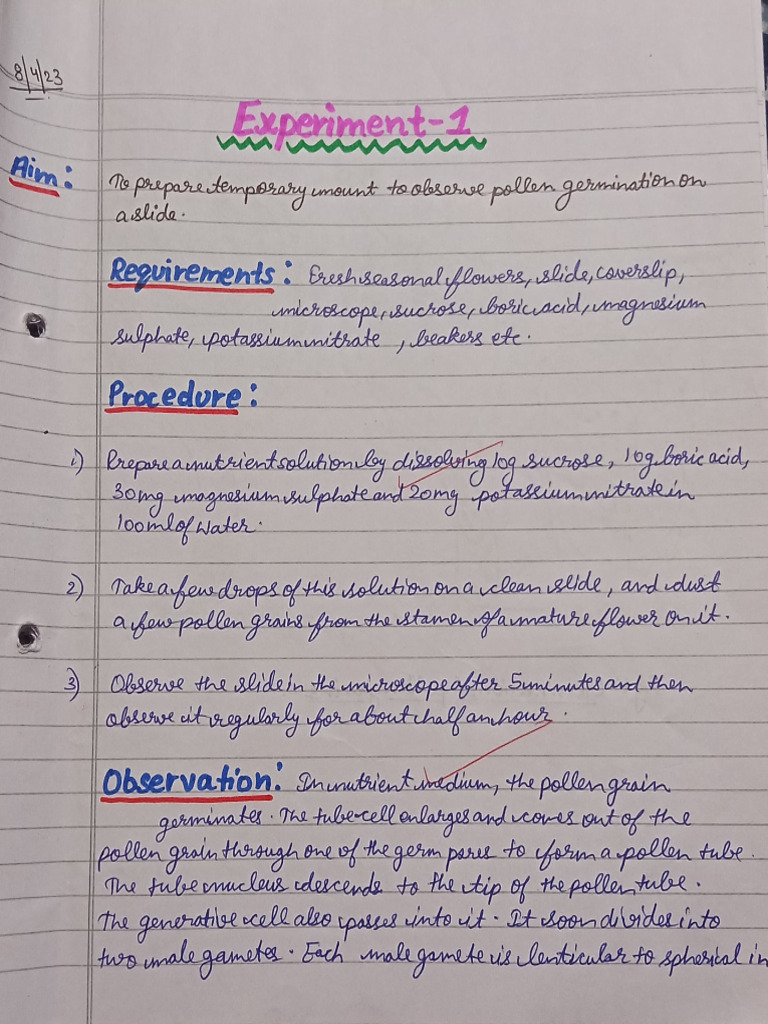 8/4/23
Experiment-1
Aim: To prepare temporary mount to observe pollen germination on
a slide.
Requirements: Fresh seasonal flowers, slide, coverslip,
microscope, sucrose, boric acid, magnesium
sulphate, potassium nitrate , beakers etc.
Procedure:
1) Prepare a nutrient solution by dissolving 10g sucrose, 10g boric acid,
30mg magnesium sulphate and 20mg potassium nitrate in
100ml of water.
2) Take a few drops of this solution on a clean slide, and dust
a few pollen grains from the stamen of a mature flower on it.
3) Observe the slide in the microscope after 5 minutes and then
observe it regularly for about half an hour.
Observation: In nutrient medium, the pollen grain
germinates. The tube cell enlarges and comes out of the
pollen grain through one of the germ pores to form a pollen tube.
The tube nucleus descends to the tip of the pollen tube.
The generative cell also passes into it. It soon divides into
two male gametes. Each male gamete is lenticular to spherical in